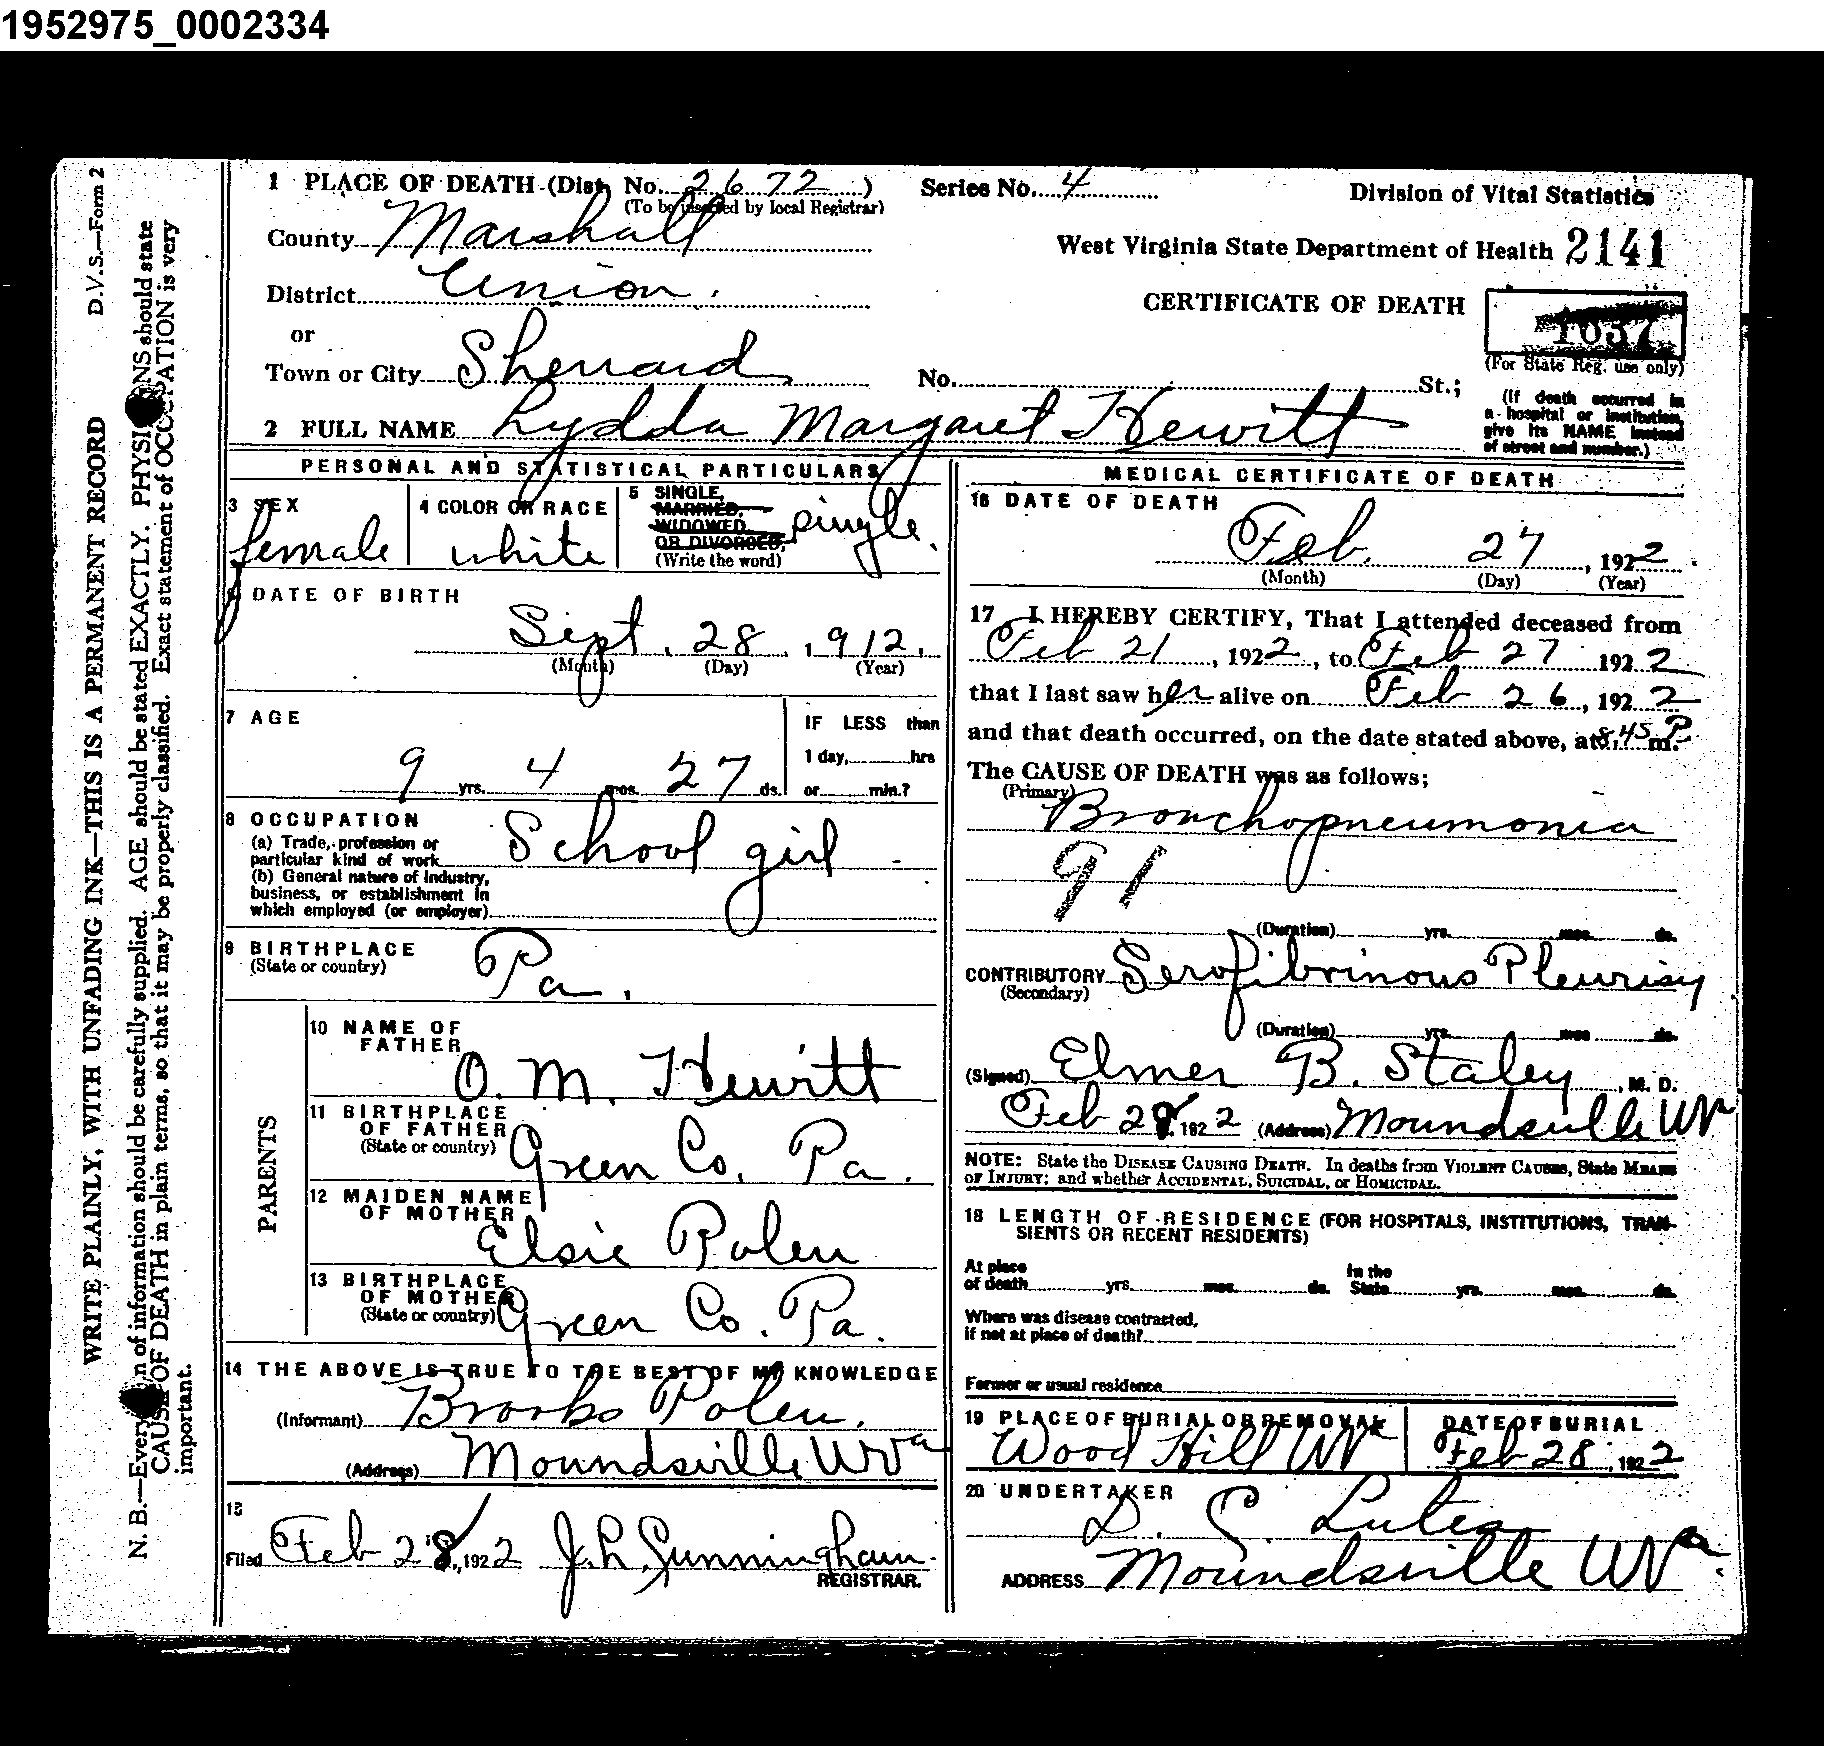 1952975_0002334
D.V.S.—Form 2
WRITE PLAINLY, WITH UNFADING INK—THIS IS A PERMANENT RECORD
N. B.—Every of information should be carefully supplied. AGE should be stated EXACTLY. PHYSI NS should state
CAUSE OF DEATH in plain terms, so that it may be properly classified. Exact statement of OCCUPATION is very
important.
1 PLACE OF DEATH (Dist. No. 2672) Series No. 4
(To be inserted by local Registrar)
Division of Vital Statistics
County Marshall
West Virginia State Department of Health 2141
District Union.
CERTIFICATE OF DEATH
1037
or
(For State Reg. use only)
Town or City Sherrard No. St.;
(If death occurred in
a hospital or institution,
give its NAME instead
of street and number.)
2 FULL NAME Lydda Margaret Hewitt
PERSONAL AND STATISTICAL PARTICULARS
3 SEX
female
4 COLOR OR RACE
white
5 SINGLE,
MARRIED,
WIDOWED
OR DIVORCED,
(Write the word)
single.
6 DATE OF BIRTH
Sept. 28, 1912.
(Month) (Day) (Year)
7 AGE
9 yrs. 4 mos. 27 ds.
IF LESS than
1 day, hrs
or min.?
8 OCCUPATION
(a) Trade, profession or
particular kind of work School girl
(b) General nature of industry,
business, or establishment in
which employed (or employer)
9 BIRTHPLACE
(State or country) Pa.
PARENTS
10 NAME OF
FATHER O. M. Hewitt
11 BIRTHPLACE
OF FATHER
(State or country) Green Co. Pa.
12 MAIDEN NAME
OF MOTHER Elsie Polen
13 BIRTHPLACE
OF MOTHER
(State or country) Green Co. Pa.
14 THE ABOVE IS TRUE TO THE BEST OF MY KNOWLEDGE
(Informant) Brooks Polen.
(Address) Moundsville WVa
15
Filed Feb 28, 1922 J. L. Cunningham.
REGISTRAR.
MEDICAL CERTIFICATE OF DEATH
16 DATE OF DEATH
Feb. 27, 1922
(Month) (Day) (Year)
17 I HEREBY CERTIFY, That I attended deceased from
Feb 21, 1922, to Feb 27 1922
that I last saw her alive on Feb 26, 1922
and that death occurred, on the date stated above, at 8.45 P m.
The CAUSE OF DEATH was as follows;
(Primary)
Bronchopneumonia
91
(Duration) yrs. mos. ds.
CONTRIBUTORY Serofibrinous Pleurisy
(Secondary)
(Duration) yrs. mos. ds.
(Signed) Elmer B. Staley, M. D.
Feb 28, 1922 (Address) Moundsville WV
NOTE: State the DISEASE CAUSING DEATH. In deaths from VIOLENT CAUSES, State MEANS
OF INJURY; and whether ACCIDENTAL, SUICIDAL, or HOMICIDAL.
18 LENGTH OF RESIDENCE (FOR HOSPITALS, INSTITUTIONS, TRAN-
SIENTS OR RECENT RESIDENTS)
At place
of death yrs. mos. ds.
In the
State yrs. mos. ds.
Where was disease contracted,
if not at place of death?
Former or usual residence
19 PLACE OF BURIAL OR REMOVAL
Wood Hill WVa
DATE OF BURIAL
Feb 28, 1922
20 UNDERTAKER
S. C. Lutes
ADDRESS Moundsville WVa.